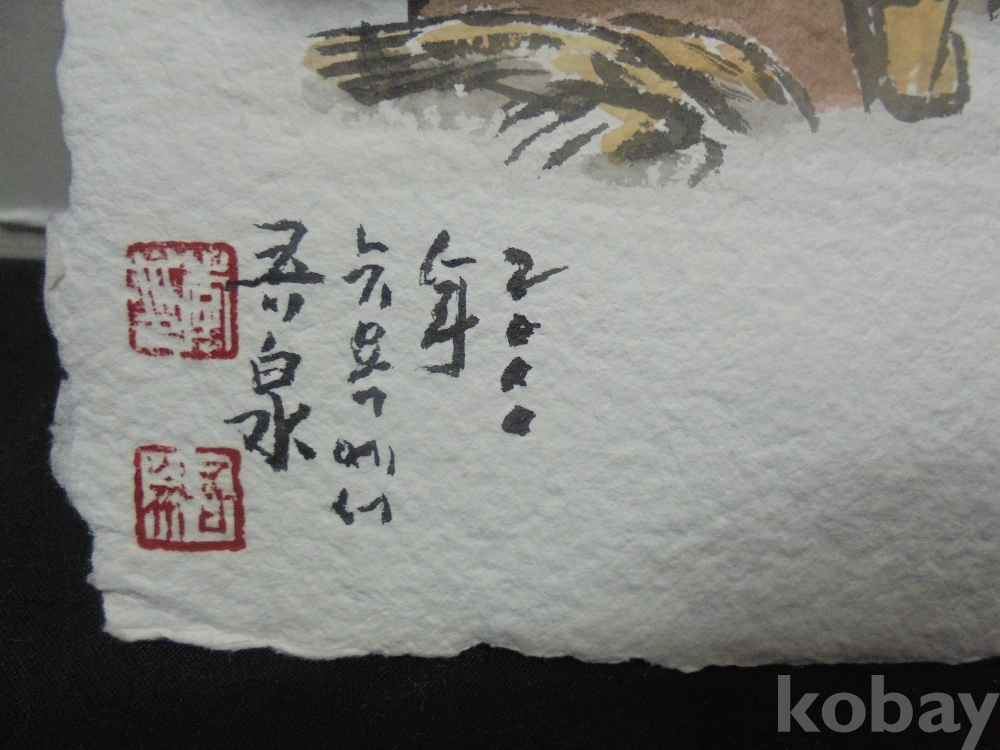 2000
年
뉴욕에서
吾泉
kobay